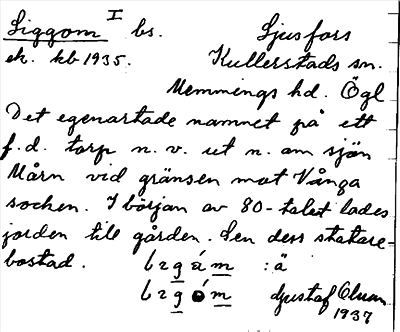 Siggom I bs. Ljusfors
ek. kb 1935. Kullerstads sn.
Memmings hd. Ögl
Det egenartade namnet på ett
f.d. torp n. v. ut n. om sjön
Mårn vid gränsen mot Vånga
socken. I början av 80-talet lades
jorden till gården. Sen dess statare-
bostad. : ä
Gustaf
1937